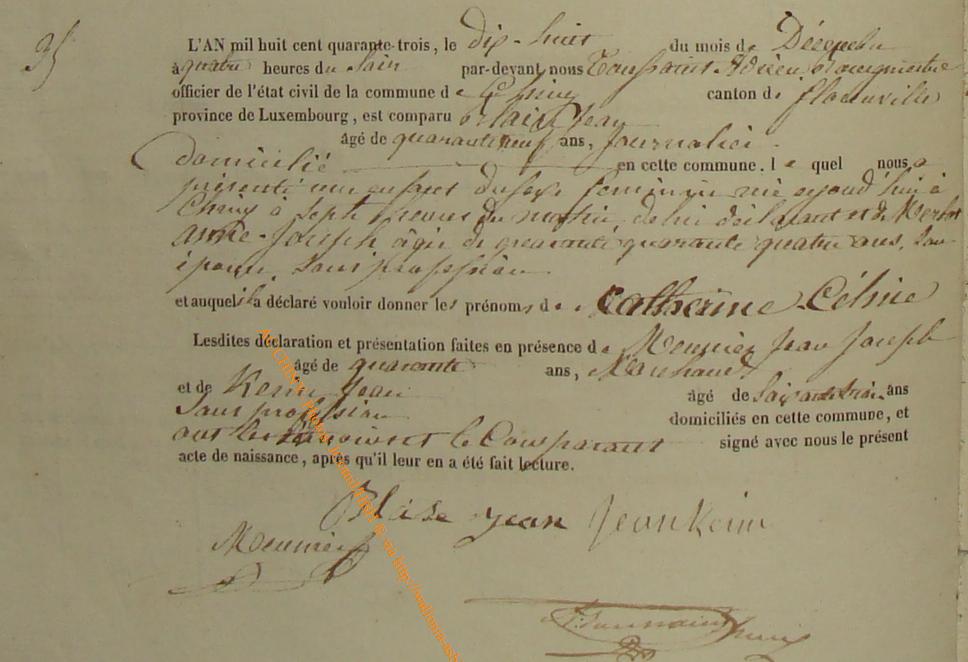 35
L'AN mil huit cent quarante-trois, le dix-huit du mois de Décembre
à quatre heures du Soir par-devant nous Toussaint Adrien
officier de l'état civil de la commune de Chiny canton de florenville
province de Luxembourg, est comparu Blaise Jean
âgé de quarante neuf ans, journalier
domicilié en cette commune. le quel nous a
présenté un enfant du sexe feminin née aujourd'hui à
Chiny à Sept heures du matin, de lui déclarant et de
anne-Joseph âgée de quarante quatre ans, Son
épouse, Sans profession
et auquel il a déclaré vouloir donner les prénoms de Catherine-Céline
Lesdites déclaration et présentation faites en présence de Meunier Jean Joseph
âgé de quarante ans, Marchand
et de Keim Jean âgé de Soixante trois ans
Sans profession domiciliés en cette commune, et
ont les témoins et le Comparant signé avec nous le présent
acte de naissance, après qu'il leur en a été fait lecture.
Blaise Jean Jean Keim
Meunier